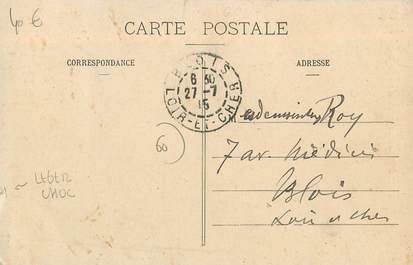 40 €
CARTE POSTALE
CORRESPONDANCE
ADRESSE
BLOIS
6 30
27-7
15
LOIR-ET-CHER
Mademoiselles Roy
7 av. Médicis
Blois
Loir et Cher
60
LEGER
CHOC